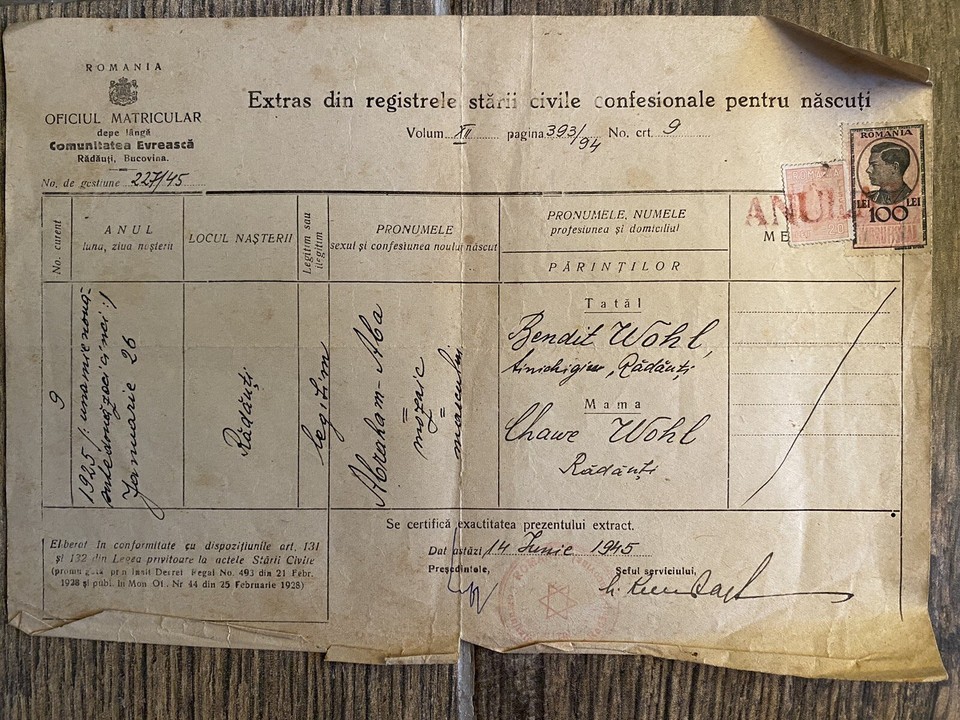 ROMANIA
OFICIUL MATRICULAR
depe lângă
Comunitatea Evrească
Rădăuți, Bucovina.
No. de gestiune 227/45
Extras din registrele stării civile confesionale pentru născuți
Volum XII pagina 393/94 No. crt. 9
No. curent
ANUL
luna, ziua nașterii
LOCUL NAȘTERII
Legitim sau
ilegitim
PRONUMELE
sexul și confesiunea noului născut
PRONUMELE, NUMELE
profesiunea și domiciliul
PĂRINȚILOR
ME
ROMANIA
LEI LEI
100
9
1925
Januarie 26
Rădăuți
legitim
Abraham-Aba
mozaic
masculin
Tatăl
Bendit Wohl,
tinichigiu, Rădăuți
Mama
Chawe Wohl
Rădăuți
Se certifică exactitatea prezentului extract.
Dat astăzi 14 Iunie 1945
Președintele,
Șeful serviciului,
Eliberat în conformitate cu dispozițiunile art. 131
și 132 din Legea privitoare la actele Stării Civile
Decret Regal No. 493 din 21 Febr.
1928 și publ. în Mon Of. Nr 44 din 25 Februarie 1928)